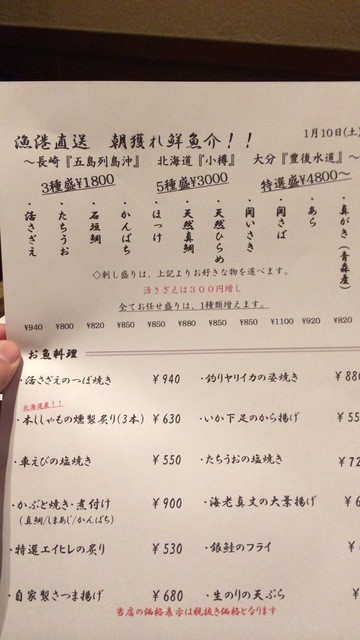 漁港直送 朝獲れ鮮魚介!!
1月10日(土)
～長崎『五島列島沖』 北海道『小樽』 大分『豊後水道』～
3種盛¥1800 5種盛¥3000 特選盛¥4800～
・真がき(青森産)
・あら
・関さば
・関いさき
・天然ひらめ
・天然真鯛
・ほっけ
・かんぱち
・石垣鯛
・たちうお
・活さざえ
◇刺し盛りは、上記よりお好きな物を選べます。
活さざえは300円増し
全てお任せ盛りは、1種類増えます。
¥940 ¥800 ¥820 ¥850 ¥850 ¥880 ¥850 ¥850 ¥1100 ¥920 ¥820
お魚料理
・活さざえのつぼ焼き ¥940
・釣りヤリイカの姿焼き ¥880
北海道産!!
・本ししゃもの燻製炙り(3本) ¥630
・いか下足のから揚げ ¥55
・車えびの塩焼き ¥550
・たちうおの塩焼き ¥72
・かぶと焼き・煮付け ¥900
(真鯛/しまあじ/かんぱち)
・海老真丈の大葉揚げ ¥
・特選エイヒレの炙り ¥530
・銀鮭のフライ ¥
・自家製さつま揚げ ¥680
・生のりの天ぷら ¥
当店の価格表示は税抜き価格となります